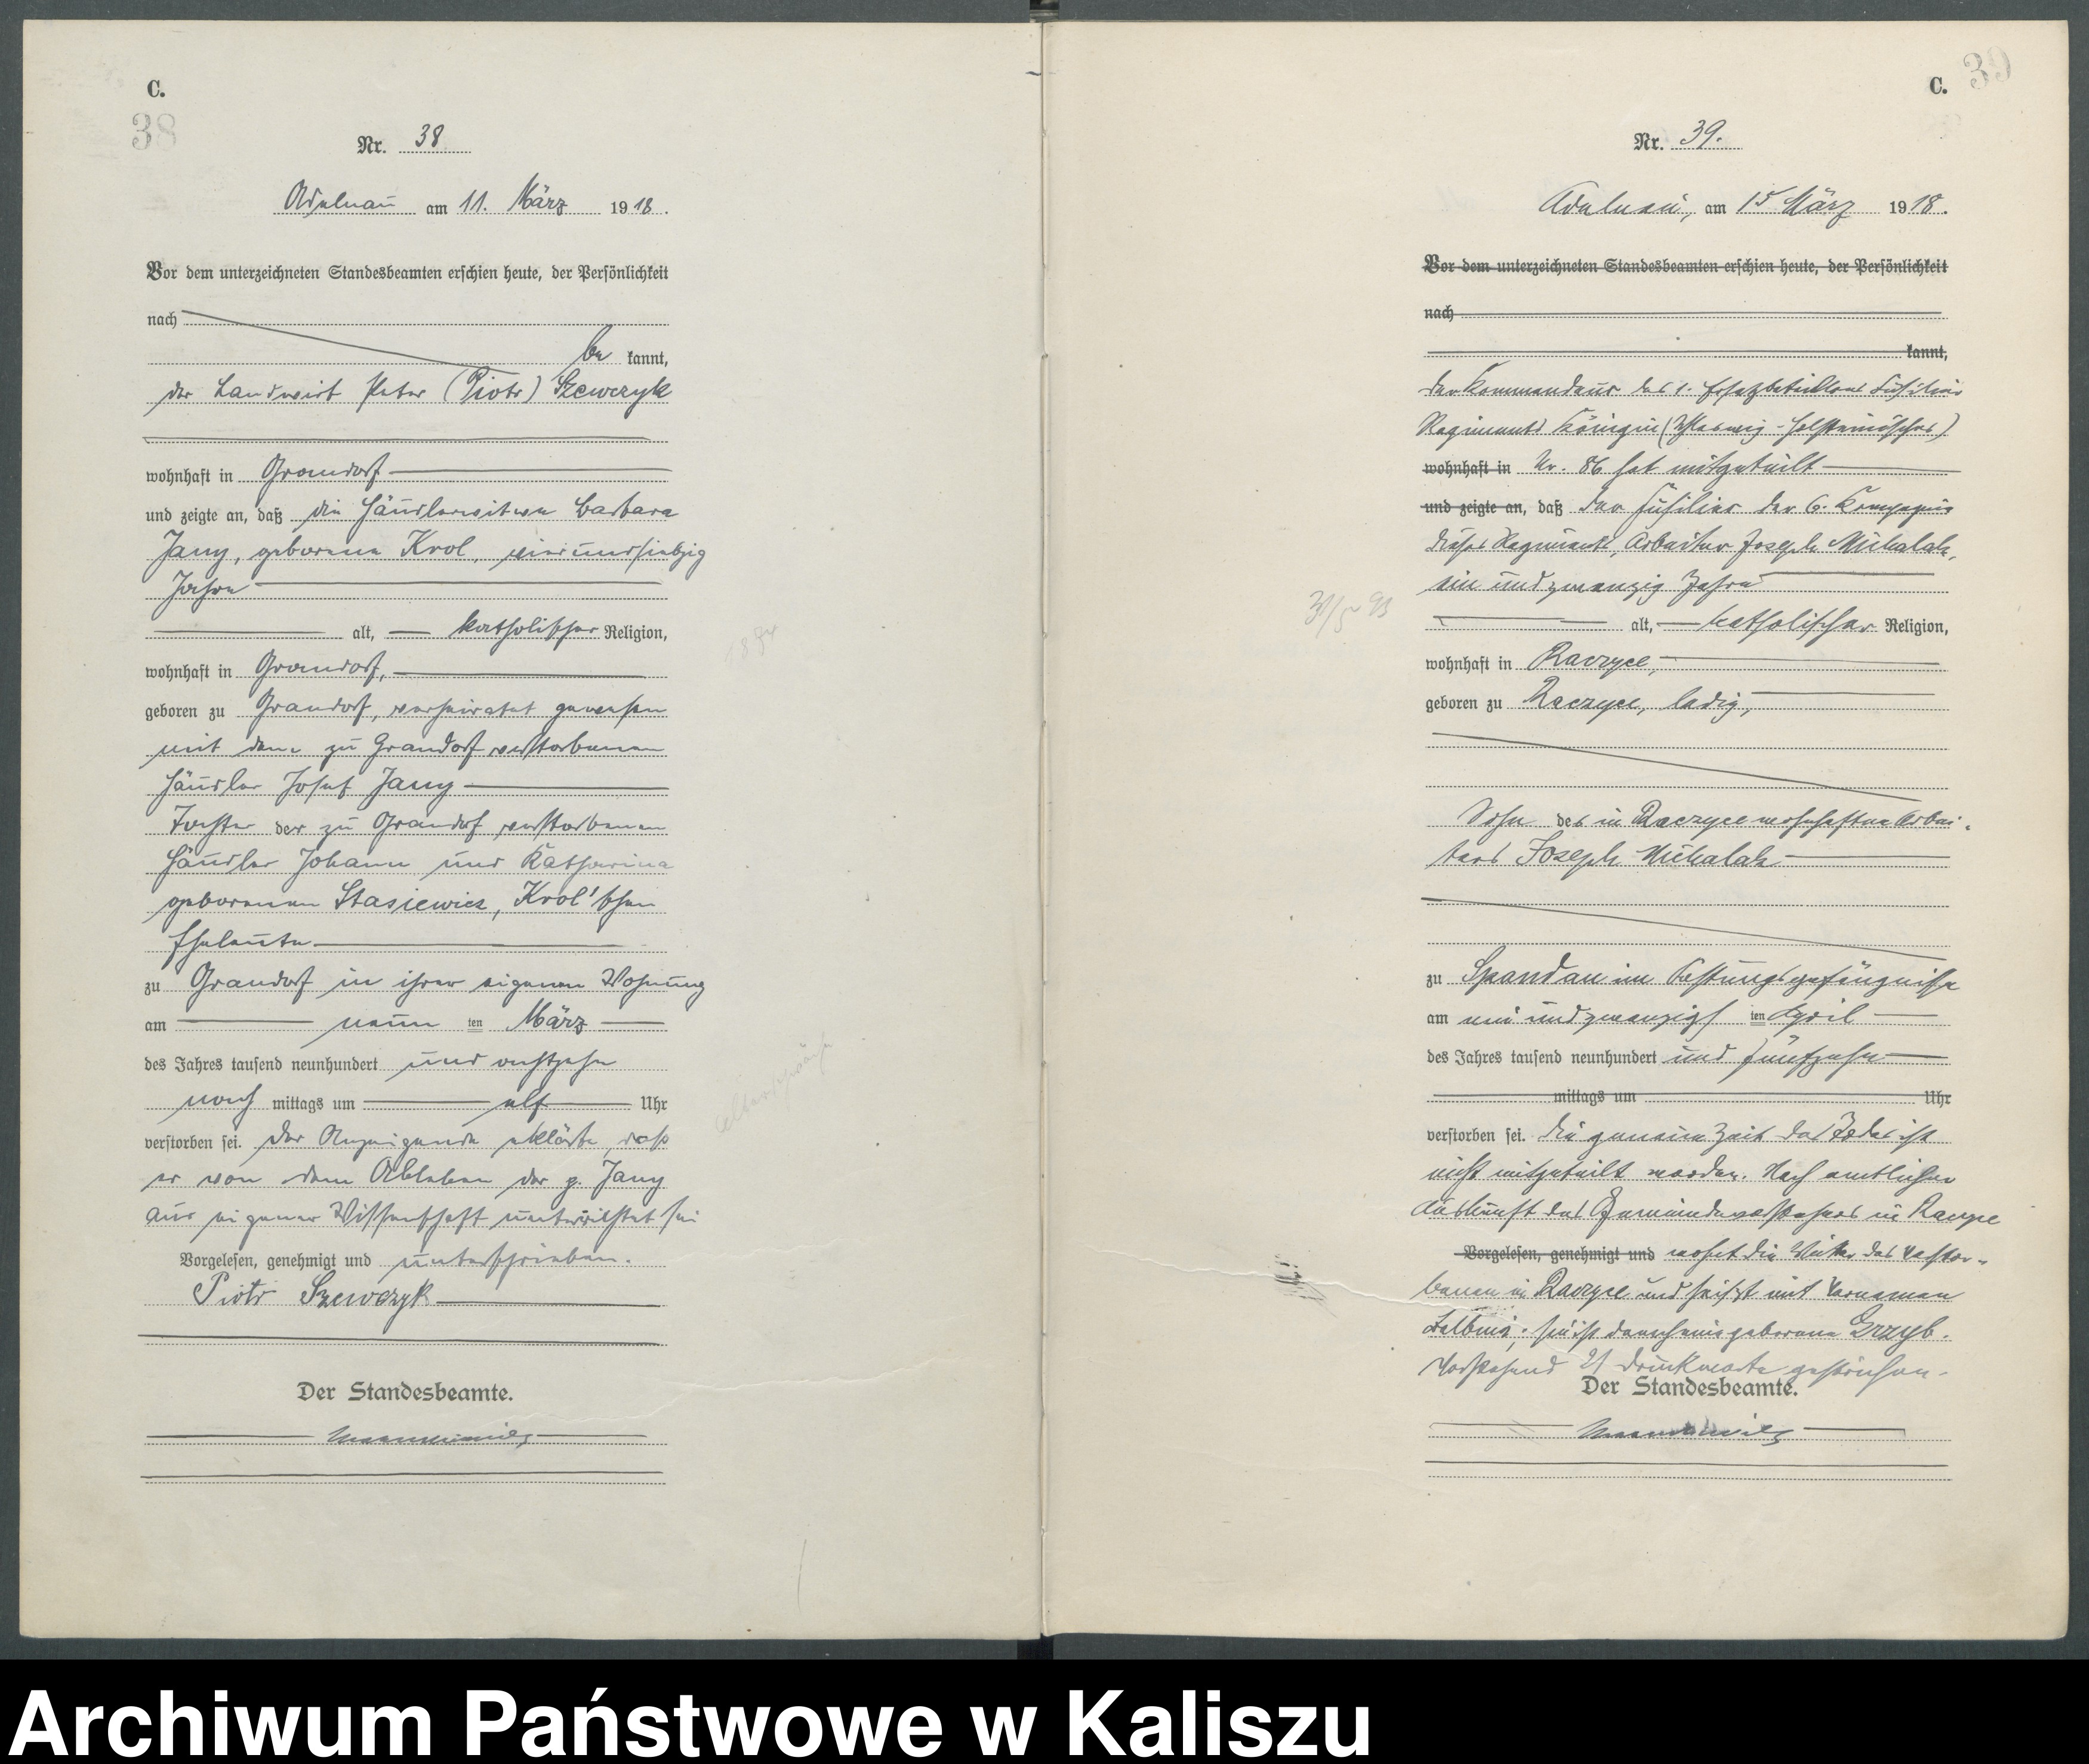 C.
38
Nr. 38
Adelnau am 11. März 1918.
Vor dem unterzeichneten Standesbeamten erschien heute, der Persönlichkeit
nach
be kannt,
der Landwirt Peter (Piotr) Szewczyk
wohnhaft in Grandorf
und zeigte an, daß die Häuslerwitwe Barbara
Jany, geborene Krol, vierundsiebzig
Jahre
alt, katholischer Religion,
wohnhaft in Grandorf,
geboren zu Grandorf, verheiratet gewesen
mit dem zu Grandorf verstorbenen
Häusler Josef Jany
Tochter der zu Grandorf verstorbenen
Häusler Johann und Katharina
geborenen Stasiewicz, Krol'schen
Eheleute
zu Grandorf in ihrer eigenen Wohnung
am neun ten März
des Jahres tausend neunhundert und achtzehn
nach mittags um elf Uhr
verstorben sei. Der Anzeigende erklärte, daß
er von dem Ableben der g. Jany
aus eigener Wissenschaft unterrichtet sei
Vorgelesen, genehmigt und unterschrieben.
Piotr Szewczyk
Der Standesbeamte.
C.
39
Nr. 39.
Adelnau, am 15 März 1918.
Vor dem unterzeichneten Standesbeamten erschien heute, der Persönlichkeit
nach
kannt,
der Kommandeur des 1. Ersatzbataillons Füsilier
Regiments Königin (Schleswig-Holsteinisches)
wohnhaft in Nr. 86 hat mitgeteilt
und zeigte an, daß der Füsilier der 6. Kompagnie
dieses Regiments, Arbeiter Joseph Michalak,
ein und zwanzig Jahre
alt, katholischer Religion,
wohnhaft in Raczyce,
geboren zu Raczyce, ledig,
Sohn des in Raczyce wohnhaften Arbei-
ters Joseph Michalak
zu Spandau im Festungsgefängnisse
am ein und zwanzigs ten April
des Jahres tausend neunhundert und fünfzehn
mittags um Uhr
verstorben sei. Die genaue Zeit des Todes ist
nicht mitgeteilt worden. Nach amtlicher
Auskunft des Gemeindevorstehers in Raczyce
Vorgelesen, genehmigt und wohnt die Mutter des Verstor-
benen in Raczyce und heißt mit Vornamen
sie ist geborene Grzyb.
Vorstehend 21 Druckworte gestrichen.
Der Standesbeamte.
Archiwum Państwowe w Kaliszu